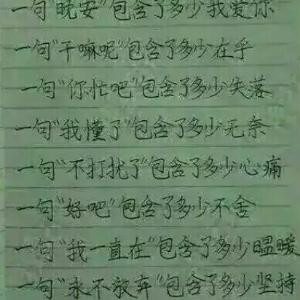 一句"晚安"包含了多少我爱你
一句"干嘛呢"包含了多少在乎
一句"你忙吧"包含了多少失落
一句"我懂了"包含了多少无奈
一句"不打扰了"包含了多少心痛
一句"好吧"包含了多少不舍
一句"我一直在"包含了多少温暖
一句"永不放弃"包含了多少坚持